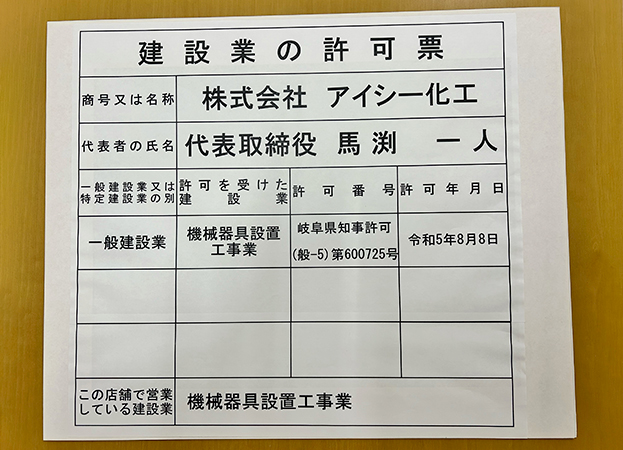 建設業の許可票
商号又は名称 株式会社 アイシー化工
代表者の氏名 代表取締役 馬渕 一人
一般建設業又は 許可を受けた 許可番号 許可年月日
特定建設業の別 建設業
一般建設業 機械器具設置 岐阜県知事許可 令和5年8月8日
工事業 (般-5)第600725号
この店舗で営業 機械器具設置工事業
している建設業